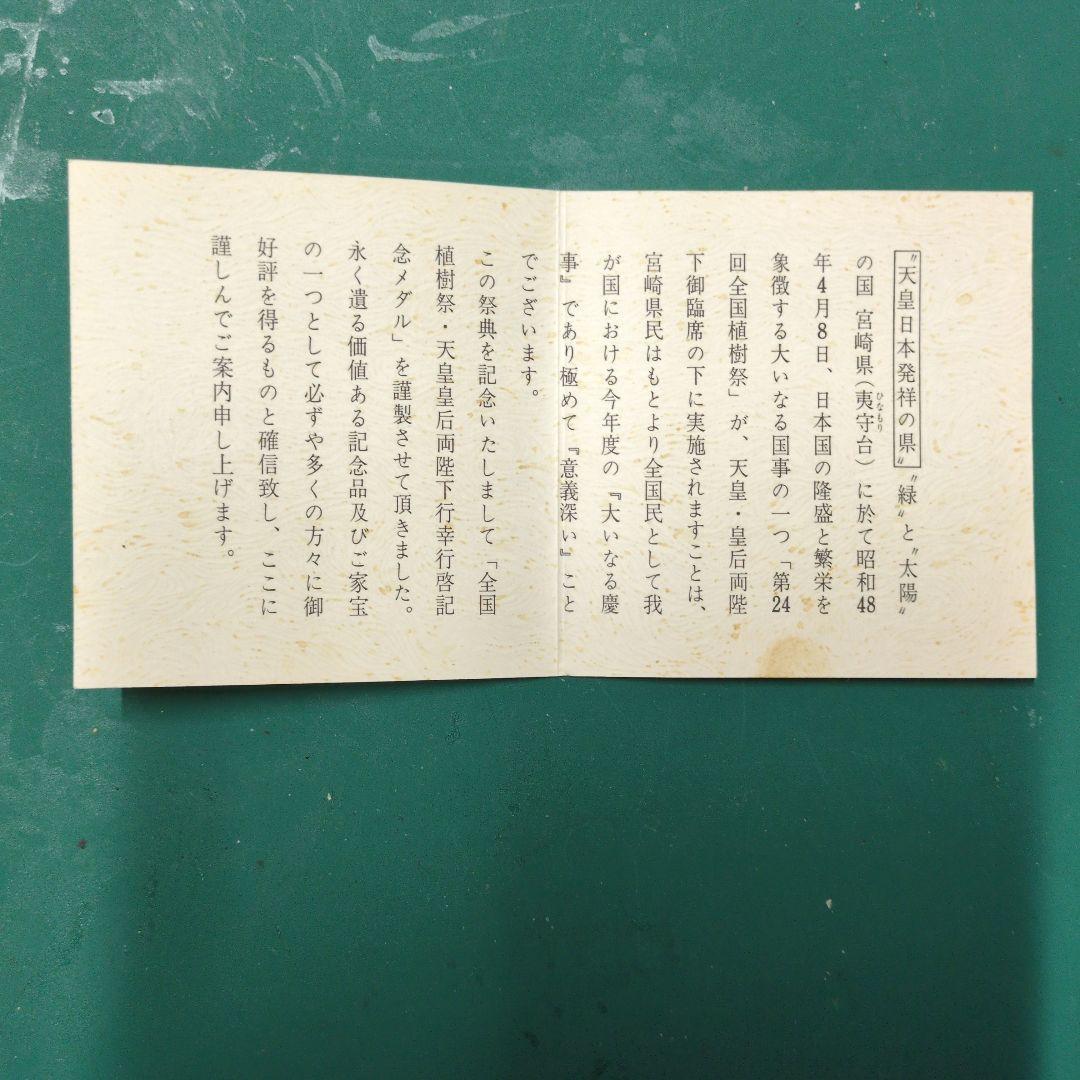 〝天皇日本発祥の県〟〝緑〟と〝太陽〟
の国 宮崎県(夷守台)に於て昭和48
ひなもり
年4月8日、日本国の隆盛と繁栄を
象徴する大いなる国事の一つ「第24
回全国植樹祭」が、天皇・皇后両陛
下御臨席の下に実施されますことは、
宮崎県民はもとより全国民として我
が国における今年度の『大いなる慶
事』であり極めて『意義深い』こと
でございます。
この祭典を記念いたしまして「全国
植樹祭・天皇皇后両陛下行幸行啓記
念メダル」を謹製させて頂きました。
永く遺る価値ある記念品及びご家宝
の一つとして必ずや多くの方々に御
好評を得るものと確信致し、ここに
謹しんでご案内申し上げます。